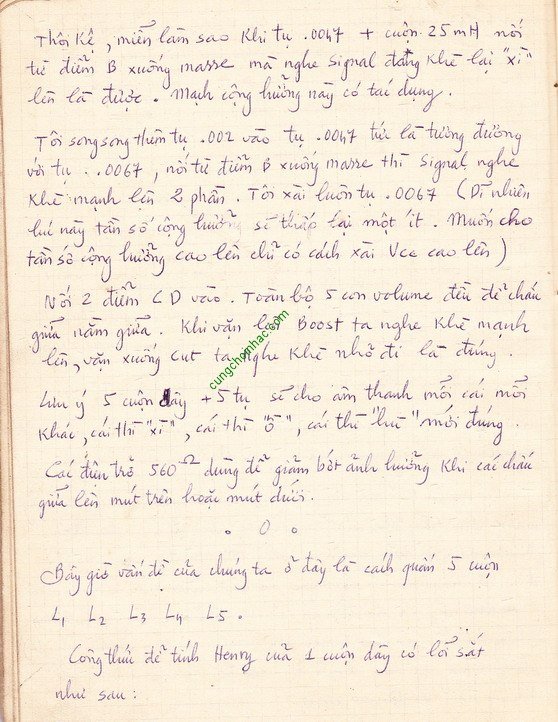 Thôi kệ, miễn làm sao khi tụ .0047 + cuộn 25mH nối
từ điểm B xuống masse mà nghe signal đang khè lại "xì"
lên là được. Mạch cộng hưởng này có tác dụng.
Tôi song song thêm tụ .002 vào tụ .0047 tức là tương đương
với tụ .0067, nối từ điểm B xuống masse thì signal nghe
khè mạnh lên 2 phần. Tôi xài luôn tụ .0067 (Dĩ nhiên
lúc này tần số cộng hưởng sẽ thấp lại một ít. Muốn cho
tần số cộng hưởng cao lên chỉ có cách xài Vcc cao lên)
Nối 2 điểm CD vào. Toàn bộ 5 con volume đều để chấu
giữa nằm giữa. Khi vặn lên Boost ta nghe khè mạnh
lên, vặn xuống cut ta nghe khè nhỏ đi là đúng.
cungchoinhac.com
Lưu ý 5 cuộn dây + 5 tụ sẽ cho âm thanh mỗi cái mỗi
khác, cái thì "xì", cái thì "ồ", cái thì "hù" mới đúng.
Các điện trở 560Ω dùng để giảm bớt ảnh hưởng khi các chấu
giữa lên mút trên hoặc mút dưới.
. 0 .
Bây giờ vấn đề của chúng ta ở đây là cách quấn 5 cuộn
L1 L2 L3 L4 L5.
Công thức để tính Henry của 1 cuộn dây có lõi sắt
như sau: